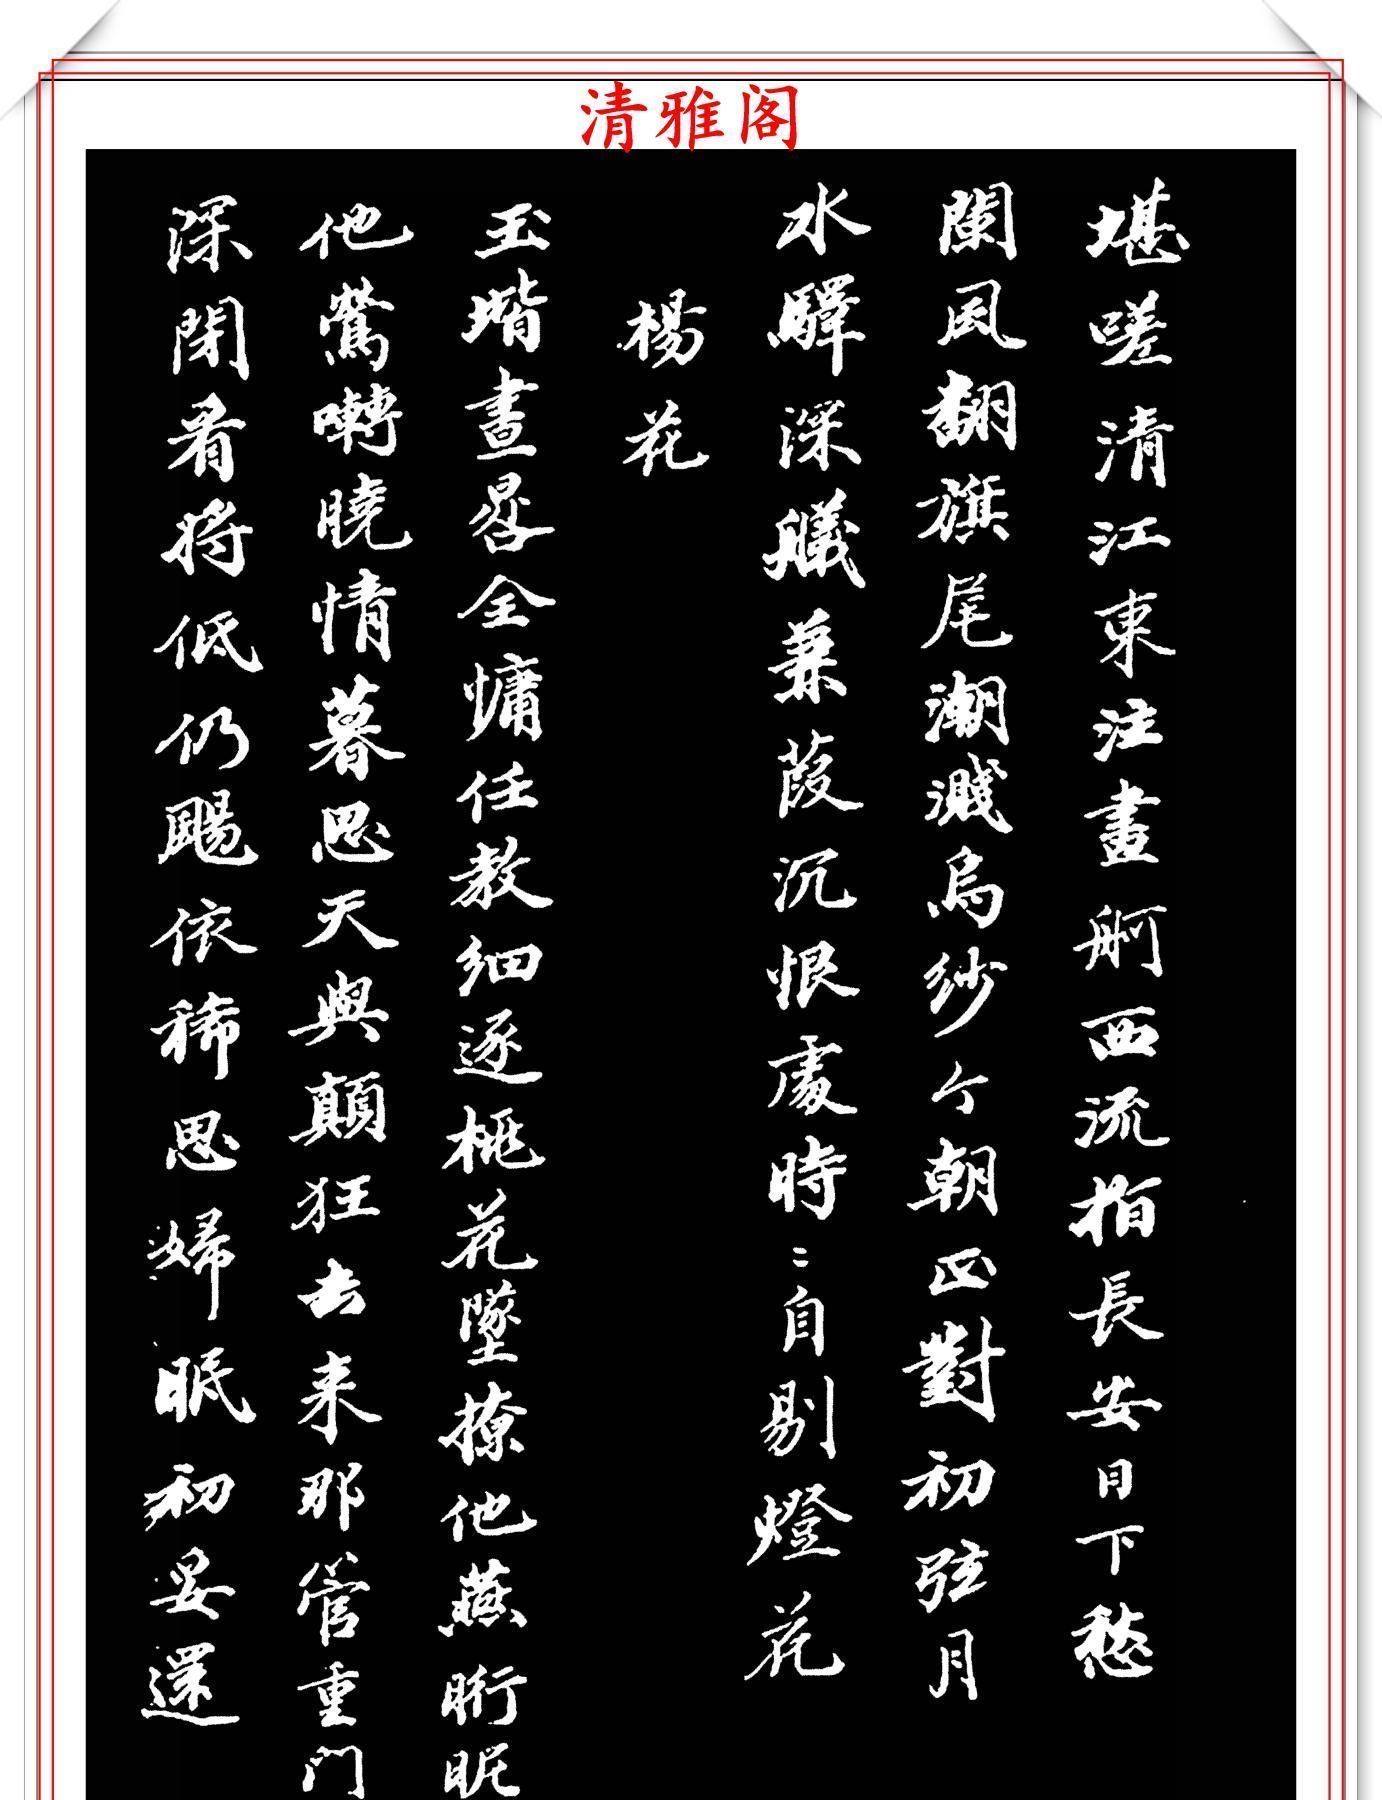 清雅阁
堪嗟清江東注畫舸西流指長安日下愁
闌風翻旗尾潮濺烏紗今朝正對初弦月
水驛深艤蒹葭沉恨處時〻自剔燈花
楊花
玉堦晝晷全慵任教細逐桃花墜撩他燕昵
他鶯囀曉情暮思天與顛狂去来那管重門
深閉看將低仍颺依稀思婦眠初妥還